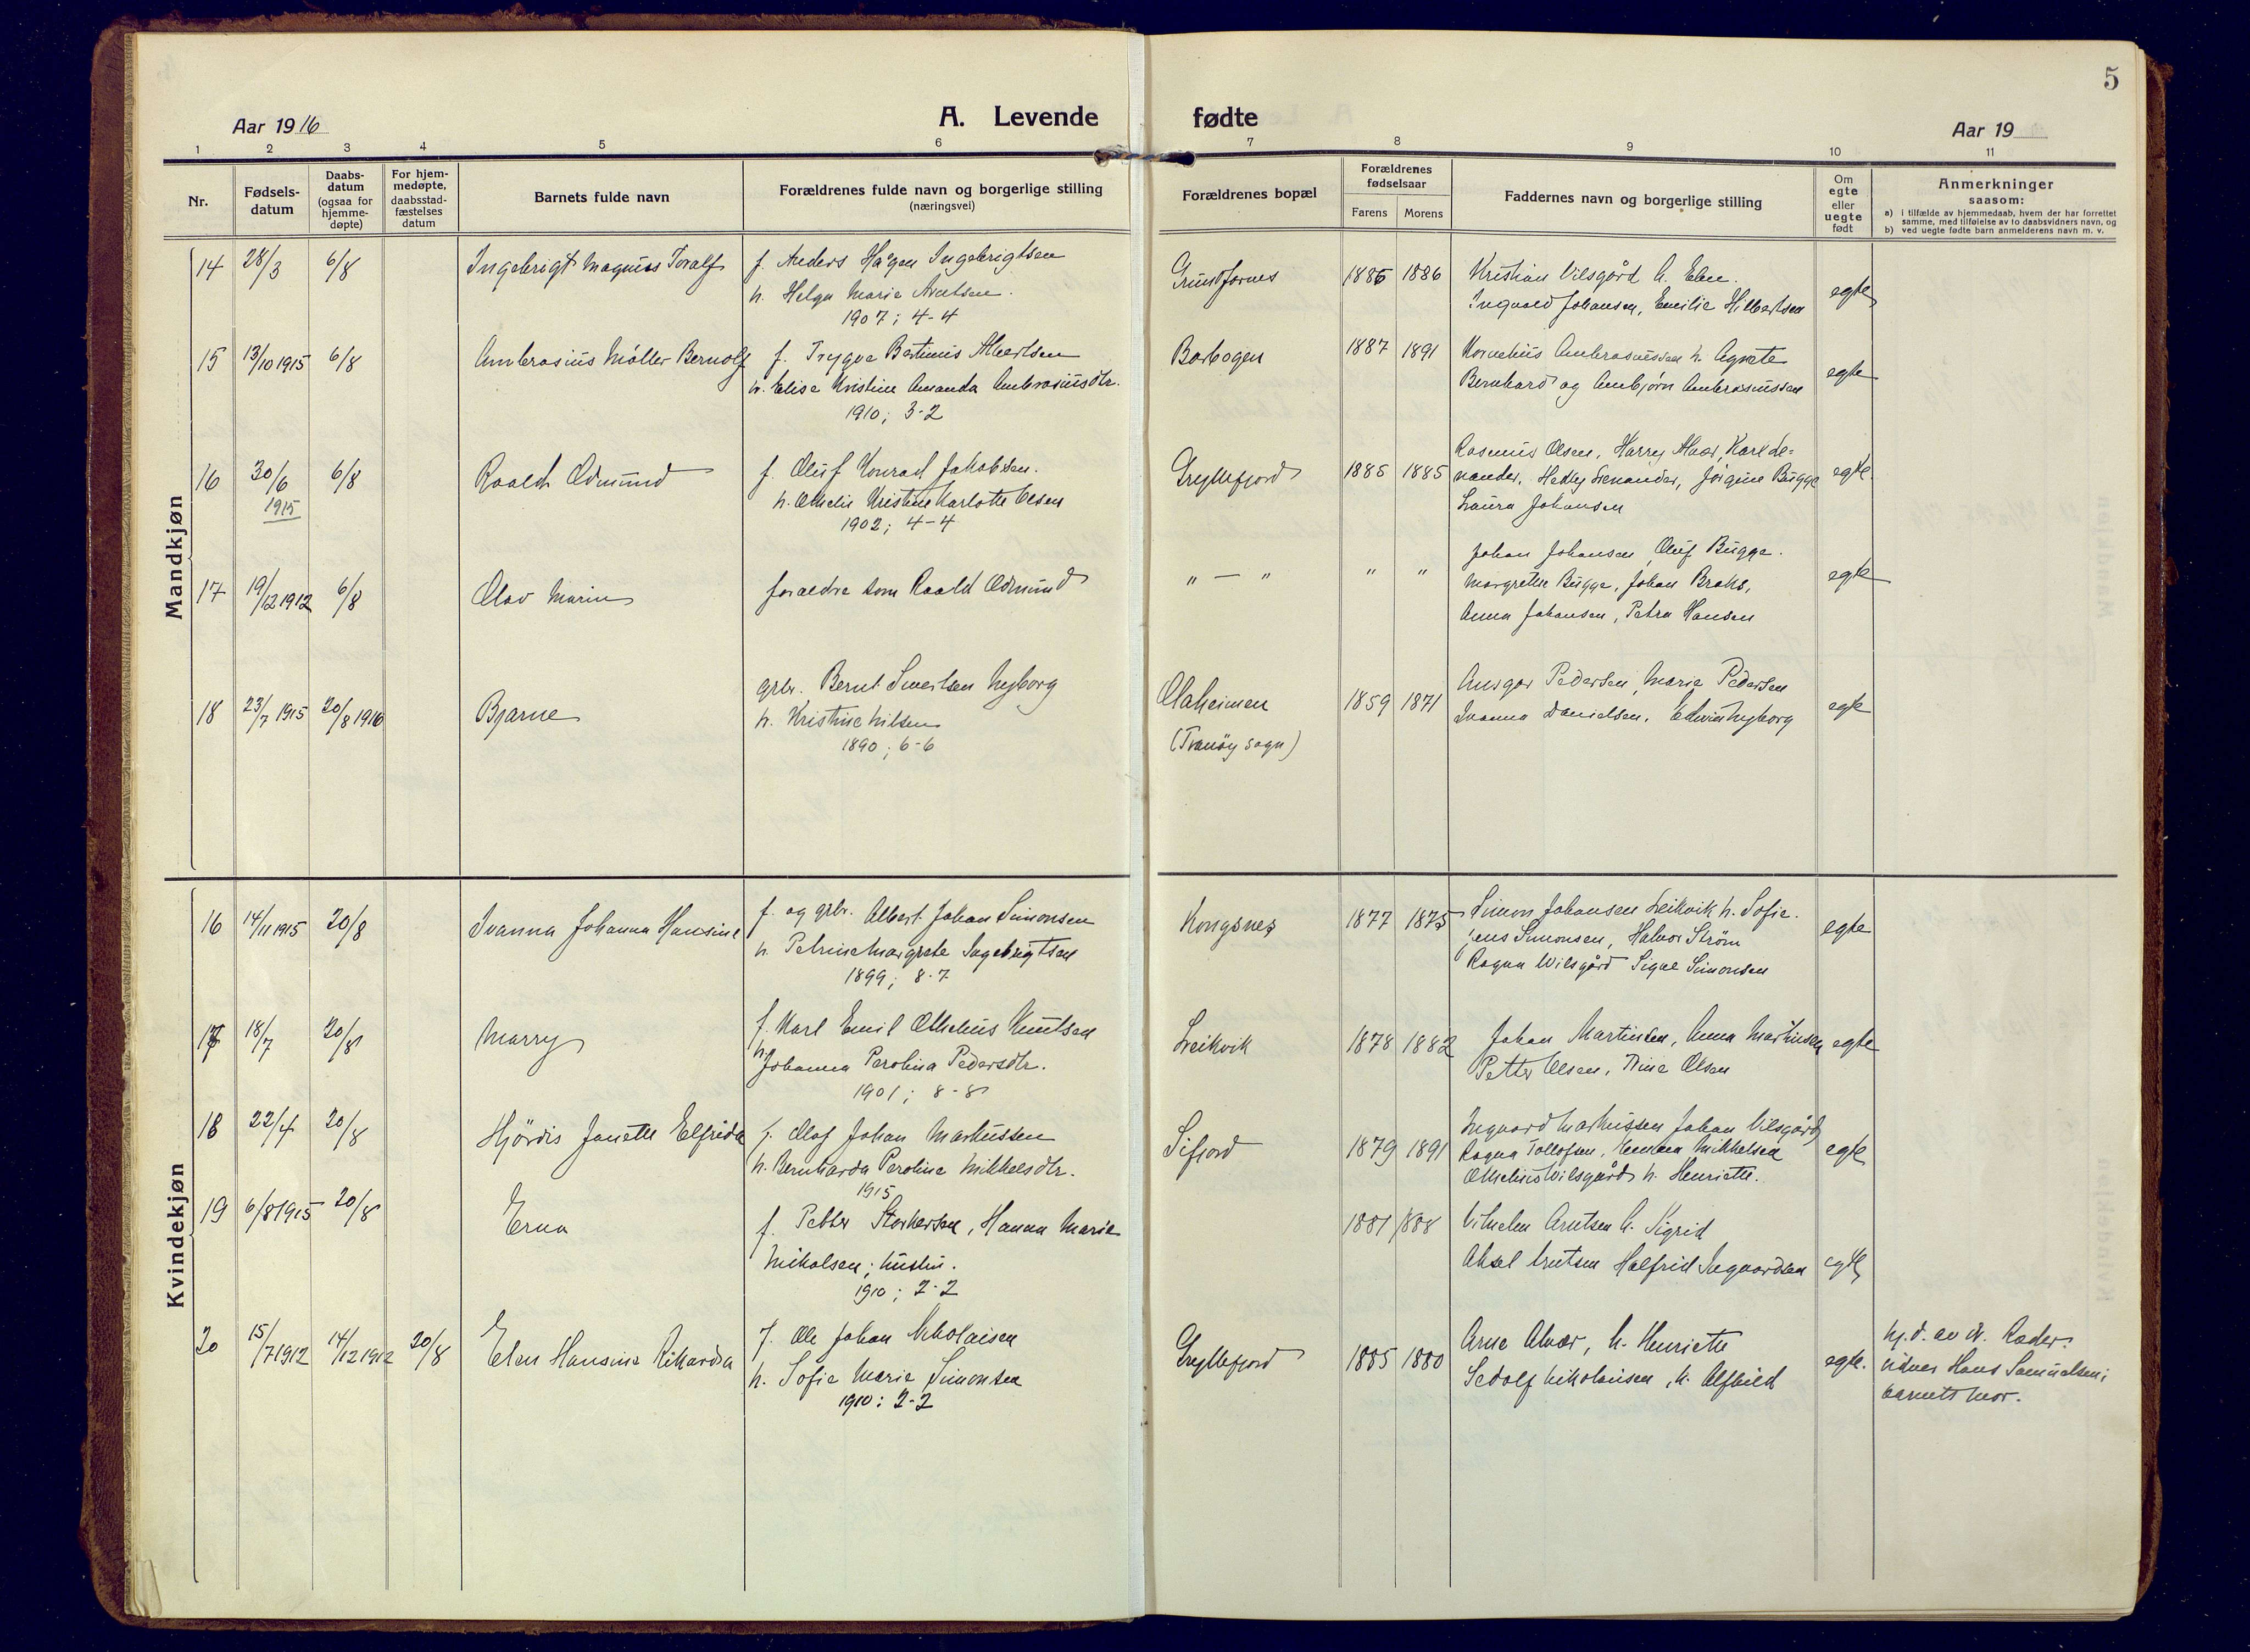 5
Aar 1916
A. Levende fødte
Aar 19
1 2 3 4 5 6 7 8 9 10 11
Nr.
Fødsels-
datum
Daabs-
datum
(ogsaa for
hjemme-
døpte)
For hjem-
medøpte,
daabsstad-
fæstelses
datum
Barnets fulde navn
Forældrenes fulde navn og borgerlige stilling
(næringsvei)
Forældrenes bopæl
Forældrenes
fødselsaar
Farens Morens
Faddernes navn og borgerlige stilling
Om
egte
eller
uegte
født
Anmerkninger
saasom:
a) i tilfælde av hjemmedaab, hvem der har forrettet
samme, med tilføielse av to daabsvidners navn, og
b) ved uegte fødte barn anmelderens navn m. v.
Mandkjøn
14 28/3 6/8 Ingebrigt Magnus Toralf
f. Anders Hågen Ingebrigtsen
h. Helga Marie Arntsen.
1907; 4-4
Grundfarnes 1886 1886
Kristian Vilsgård h. Elen.
Ingvald Johansen, Emilie Hilbertsen
egte
15 13/10 1915 6/8 Ambrosius Møller Bernolf
f. Trygve Bertinus Albertsen
h. Elise Kristine Amanda Ambrosiusdtr.
1910; 3-2
Barbogen 1887 1891
Kornelius Ambrosiussen h. Agnete
Bernhard og Ambjørn Ambrosiussen
egte
16 30/6 1915 6/8 Roald Odmund
f. Oluf Konrad Jakobsen.
h. Othelie Kristine Karlotte Olsen
1902; 4-4
Gryllefjord 1885 1885
Rasmus Olsen, Harry Alvær, Karl Le=
nander, Hedley Lenander, Jørgine Bugge
Laura Johansen
egte.
17 19/12 1912 6/8 Olav Marin
forældre som Roald Odmund
" — " " "
Johan Johansen, Oluf Bugge.
Margrethe Bugge, Johan Braks,
Anna Johansen, Petra Hansen
egte
18 23/7 1915 20/8 1916 Bjarne
grbr. Bernt Sivertsen Nyborg
h. Kristine Nilsen
1890; 6-6
Olaheimen
(Tranøy sogn)
1859 1871
Ansgar Pedersen, Marie Pedersen
Ivanna Danielsen, Edvin Nyborg
egte
Kvindekjøn
16 14/11 1915 20/8 Ivanna Johanna Hansine
f. og grbr. Albert Johan Simonsen
h. Petrine Margrete Ingebrigtsen
1899; 8-7
Kongsnes 1877 1875
Simon Johansen Leikvik h. Sofie.
Jens Simonsen, Halvor Strøm
Ragna Wilsgård Signe Simonsen
egte
17 18/7 20/8 Marry
f. Karl Emil Othelius Knutsen
h. Johanna Perolina Pedersdtr.
1901; 8-8
Leikvik 1878 1882
Johan Martinsen, Anna Martinsen
Petter Olsen, Dina Olsen
egte
18 22/4 20/8 Hjördis Janette Elfrida
f. Olaf Johan Markussen
h. Bernharda Peroline Mikkelsdtr.
1915
Sifjord 1879 1891
Ingvard Markussen Johan Vilsgård
Ragna Tollofsen, Mikkelsen
Othelius Wilsgård h. Henriette.
egte
19 6/8 1915 20/8 Erna
f. Petter Storkersen, Hanna Marie
Nikolsen; hustru.
1910; 2-2
1881 1888
Vilhelm Arntsen h. Sigrid
Aksel Arntsen Halfrid Ingvardsen
egte
20 15/7 1912 14/12 1912 20/8 Elen Hansine Rikarda
f. Ole Johan Nikolaisen
h. Sofie Marie Simonsen
1910: 2-2
Gryllefjord 1885 1880
Arne Alvær, h. Henriette
Sedolf Nikolaisen, h. Alfhild
egte.
hj.d. av Rader.
vidner Hans Samuelsen;
barnets mor.